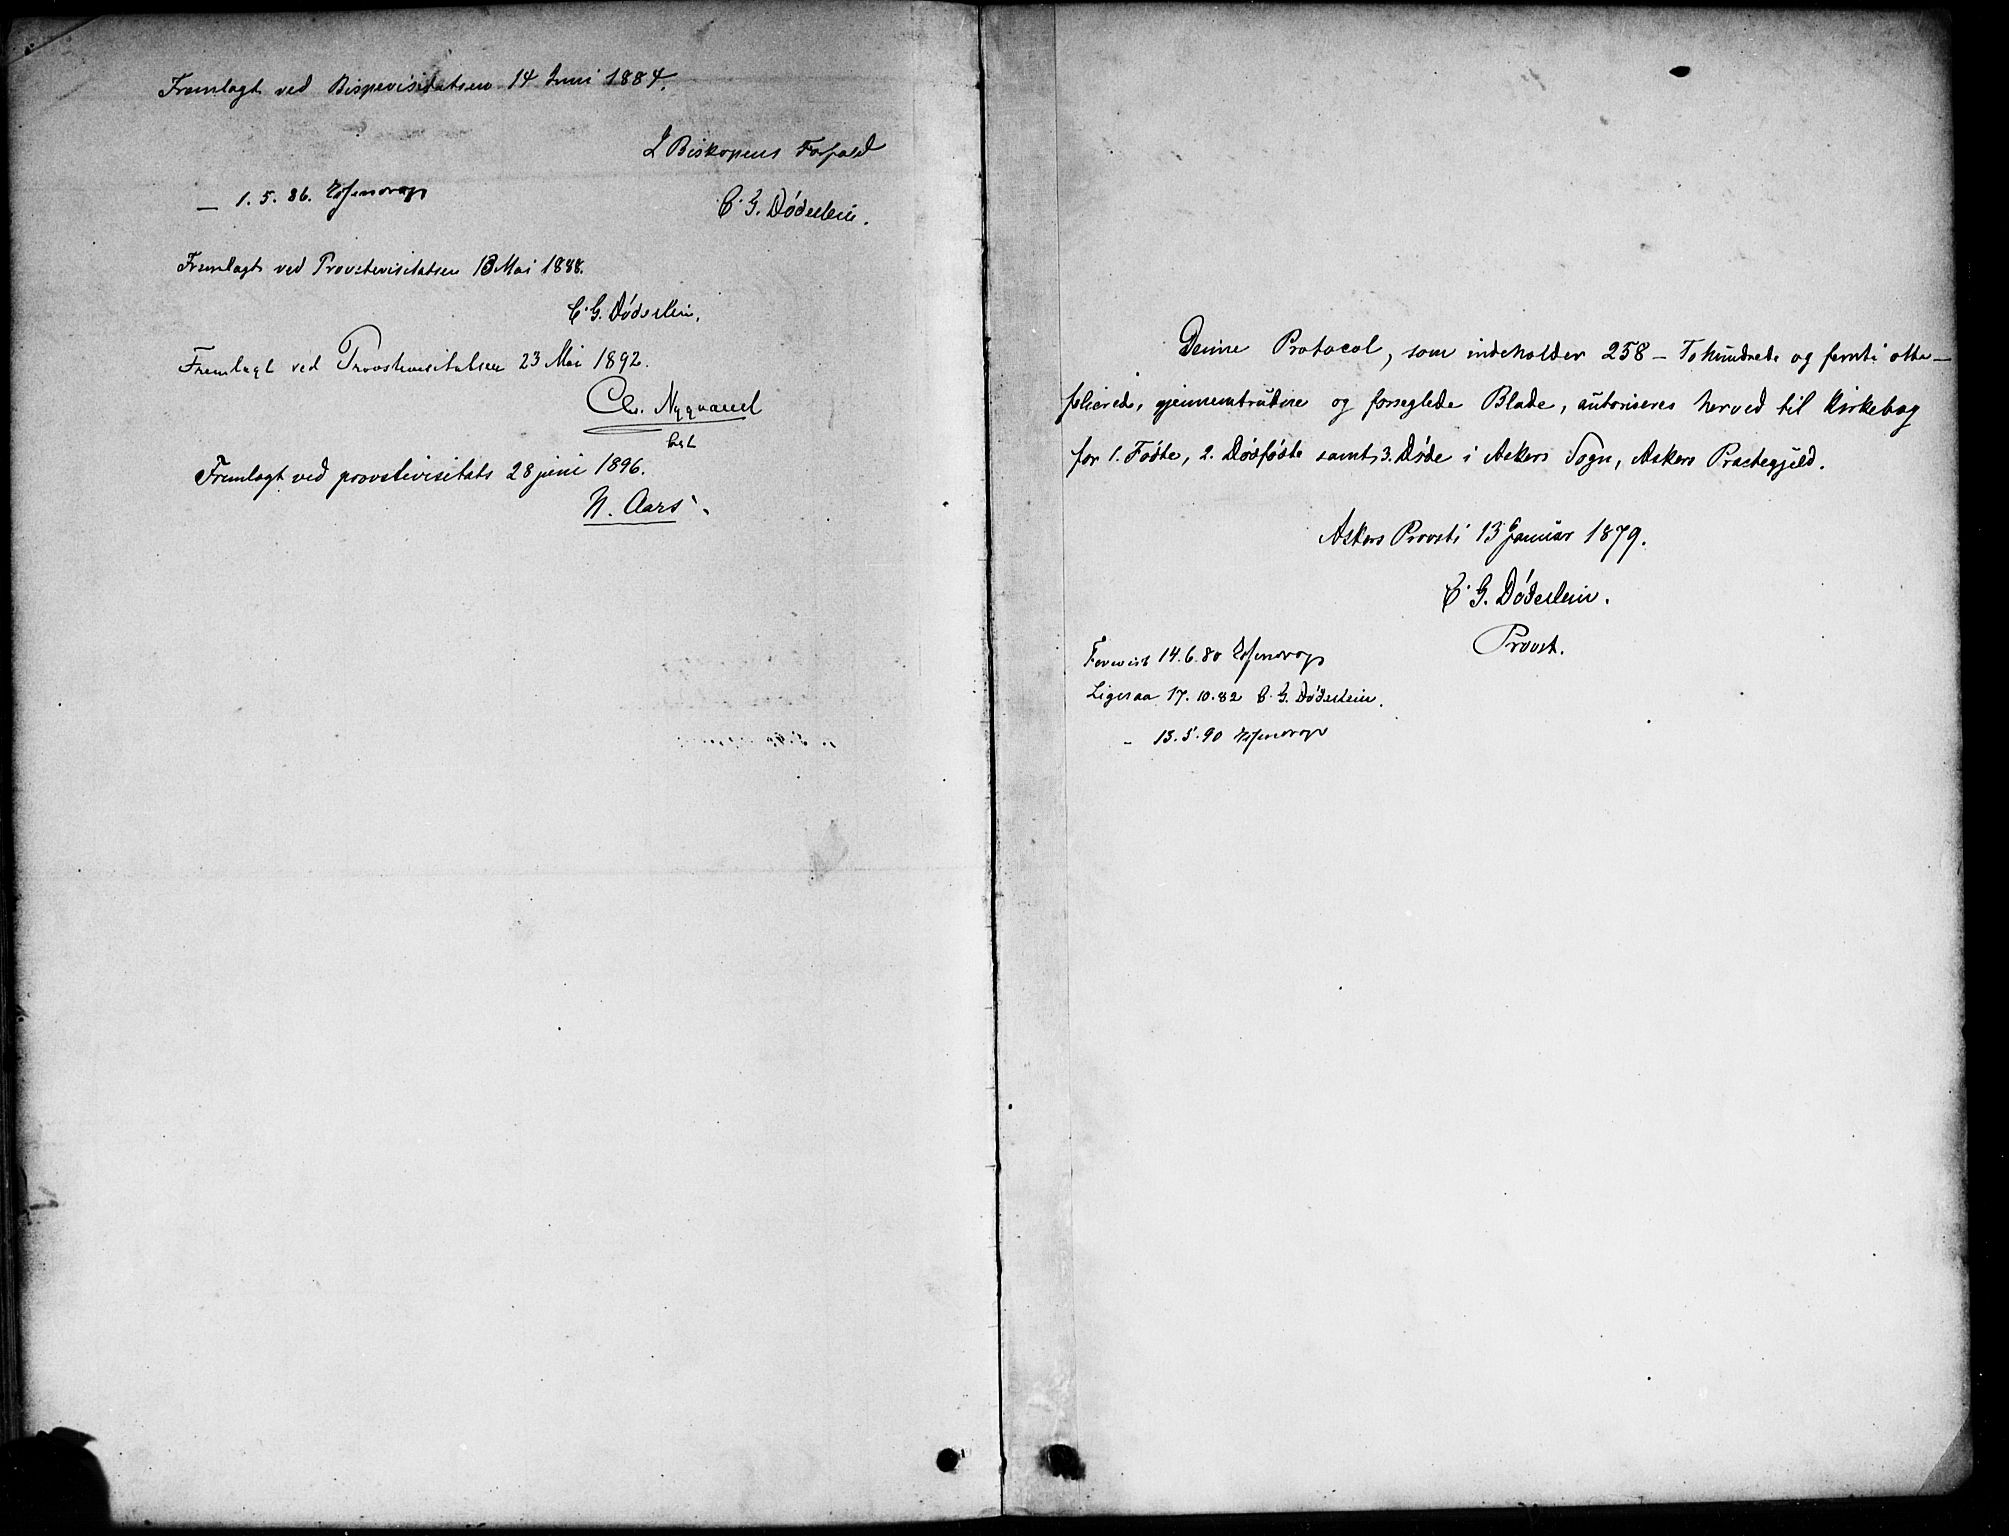 Fremlagt ved Bispevisitatsen 14 Juni 1884.
I Biskopens Forfald
C. G. Døderlein.
— 1. 5. 86. Essendrop
Fremlagt ved Provstevisitatsen 13 Mai 1888.
C. G. Døderlein.
Fremlagt ved Provstevisitatsen 23 Mai 1892.
Chr. Nygaard
cst
Fremlagt ved provstevisitats 28 juni 1896.
N. Aars.
Denne Protocol, som indeholder 258 – To hundrede og femti otte –
folierede, gjennemtrukne og forseglede Blade, autoriseres herved til Kirkebog
for 1. Fødte, 2. Dødfødte samt 3. Døde i Askers Sogn, Askers Præstegjeld.
Askers Provsti 13 Januar 1879.
C. G. Døderlein.
Provst.
Forevist 14. 6. 80 Essendrop
Ligesaa 17. 10. 82 C. G. Døderlein.
– 13. 5. 90 Essendrop